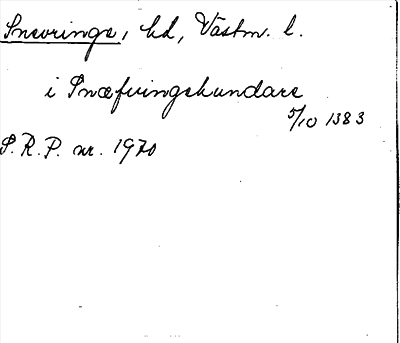 Snevringe, hd, Västm. l.
i Snæfringshundare
5/10 1383
S. R. P. nr. 1970